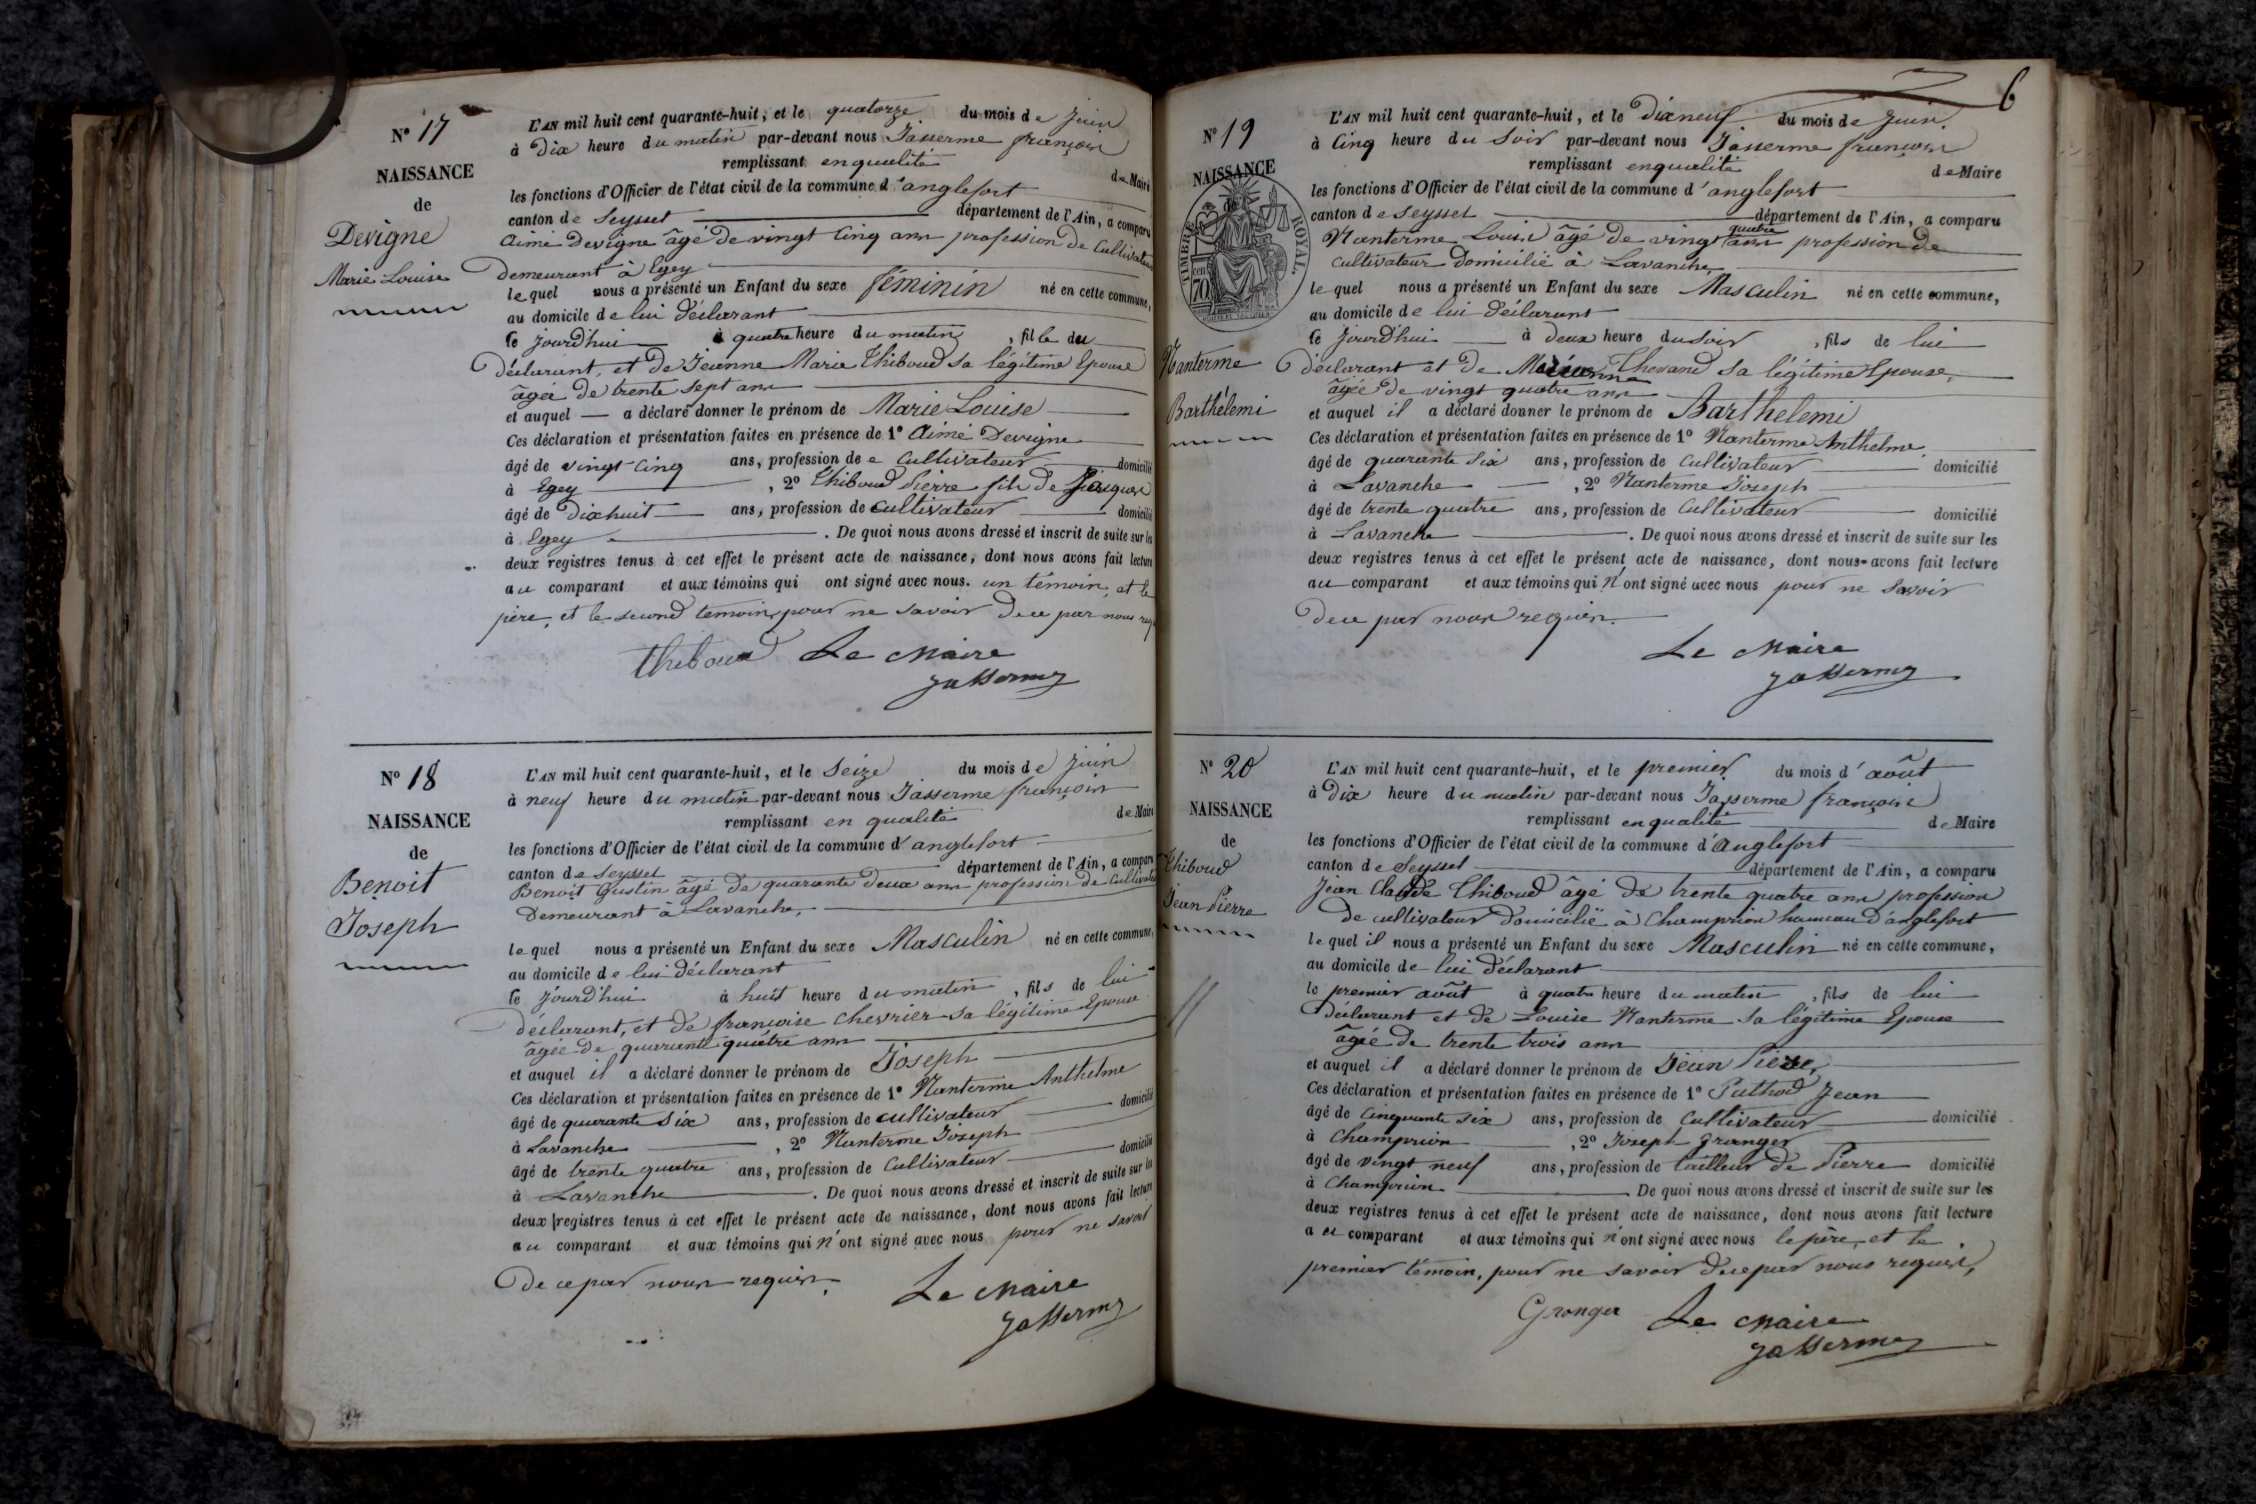 N° 17
NAISSANCE
de
Devigne
Marie Louise
L'AN mil huit cent quarante-huit, et le quatorze du mois de Juin
à Dix heure du matin par-devant nous Jasserme françois
remplissant en qualité de Maire
les fonctions d'Officier de l'état civil de la commune d'anglefort
canton de Seyssel département de l'Ain, a comparu
Aimé Devigne âgé de vingt Cinq ans profession de Cultivateur
Demeurant à Egey
le quel nous a présenté un Enfant du sexe féminin né en cette commune,
au domicile de lui déclarant
ce jourd'hui à quatre heure du matin, fille du
Déclarant, et de Jeanne Marie Thiboud sa légitime Epouse
âgée de trente sept ans
et auquel a déclaré donner le prénom de Marie Louise
Ces déclaration et présentation faites en présence de 1° Aimé Devigne
âgé de vingt Cinq ans, profession de Cultivateur domicilié
à Egey, 2° Thiboud Pierre fils de
âgé de Dixhuit ans, profession de cultivateur domicilié
à Egey. De quoi nous avons dressé et inscrit de suite sur les
deux registres tenus à cet effet le présent acte de naissance, dont nous avons fait lecture
au comparant et aux témoins qui ont signé avec nous. un témoin, et le
père, et le second témoin, pour ne savoir De ce par nous req
Thiboud Le Maire
Jasserme
N° 18
NAISSANCE
de
Benoit
Joseph
L'AN mil huit cent quarante-huit, et le Seize du mois de Juin
à neuf heure du matin par-devant nous Jasserme françois
remplissant en qualité de Maire
les fonctions d'Officier de l'état civil de la commune d'anglefort
canton de Seyssel département de l'Ain, a comparu
Benoit Justin âgé de quarante deux ans profession de Cultivateur
Demeurant à Lavanche,
le quel nous a présenté un Enfant du sexe Masculin né en cette commune,
au domicile de lui déclarant
ce jourd'hui à huit heure du matin, fils de lui
déclarant, et de françoise Chevrier sa légitime Epouse
âgée de quarante quatre ans
et auquel il a déclaré donner le prénom de Joseph
Ces déclaration et présentation faites en présence de 1° Nanterme Anthelme
âgé de quarante Six ans, profession de cultivateur domicilié
à Lavanche, 2° Nanterme Joseph
âgé de trente quatre ans, profession de Cultivateur domicilié
à Lavanche. De quoi nous avons dressé et inscrit de suite sur les
deux registres tenus à cet effet le présent acte de naissance, dont nous avons fait lecture
au comparant et aux témoins qui n'ont signé avec nous pour ne savoir
De ce par nous requis.
Le Maire
Jasserme
6
N° 19
NAISSANCE
de
TIMBRE ROYAL
cen 70
Nanterme
Barthélemi
L'AN mil huit cent quarante-huit, et le Dixneuf du mois de Juin
à Cinq heure du Soir par-devant nous Jasserme françois
remplissant en qualité de Maire
les fonctions d'Officier de l'état civil de la commune d'anglefort
canton de Seyssel département de l'Ain, a comparu
quatre
Nanterme Louis âgé de vingt ans profession de
cultivateur Domicilié à Lavanche,
le quel nous a présenté un Enfant du sexe Masculin né en cette commune,
au domicile de lui déclarant
ce jourd'hui à Deux heure du soir, fils de lui
déclarant et de Thevand sa légitime Epouse,
âgée de vingt quatre ans
et auquel il a déclaré donner le prénom de Barthelemi
Ces déclaration et présentation faites en présence de 1° Nanterme Anthelme
âgé de quarante Six ans, profession de Cultivateur domicilié
à Lavanche, 2° Nanterme Joseph
âgé de trente quatre ans, profession de Cultivateur domicilié
à Lavanche. De quoi nous avons dressé et inscrit de suite sur les
deux registres tenus à cet effet le présent acte de naissance, dont nous avons fait lecture
au comparant et aux témoins qui n'ont signé avec nous pour ne Savoir
De ce par nous requis.
Le Maire
Jasserme
N° 20
NAISSANCE
de
Thiboud
Jean Pierre
L'AN mil huit cent quarante-huit, et le premier du mois d'août
à Dix heure du matin par-devant nous Jasserme françois
remplissant en qualité de Maire
les fonctions d'Officier de l'état civil de la commune d'Anglefort
canton de Seyssel département de l'Ain, a comparu
Jean Claude Thiboud âgé de trente quatre ans profession
de cultivateur Domicilié à Champrion hameau d'anglefort
le quel il nous a présenté un Enfant du sexe Masculin né en cette commune,
au domicile de lui déclarant
le premier août à quatre heure du matin, fils de lui
Déclarant et de Louise Nanterme sa légitime Epouse
âgée de trente trois ans
et auquel il a déclaré donner le prénom de Jean Pierre,
Ces déclaration et présentation faites en présence de 1° Puthod Jean
âgé de Cinquante Six ans, profession de Cultivateur domicilié
à Champrion, 2° Joseph Granger
âgé de vingt neuf ans, profession de tailleur de Pierre domicilié
à Champrion. De quoi nous avons dressé et inscrit de suite sur les
deux registres tenus à cet effet le présent acte de naissance, dont nous avons fait lecture
au comparant et aux témoins qui n'ont signé avec nous le père, et le
premier témoin, pour ne savoir De ce par nous requis,
Granger Le Maire
Jasserme